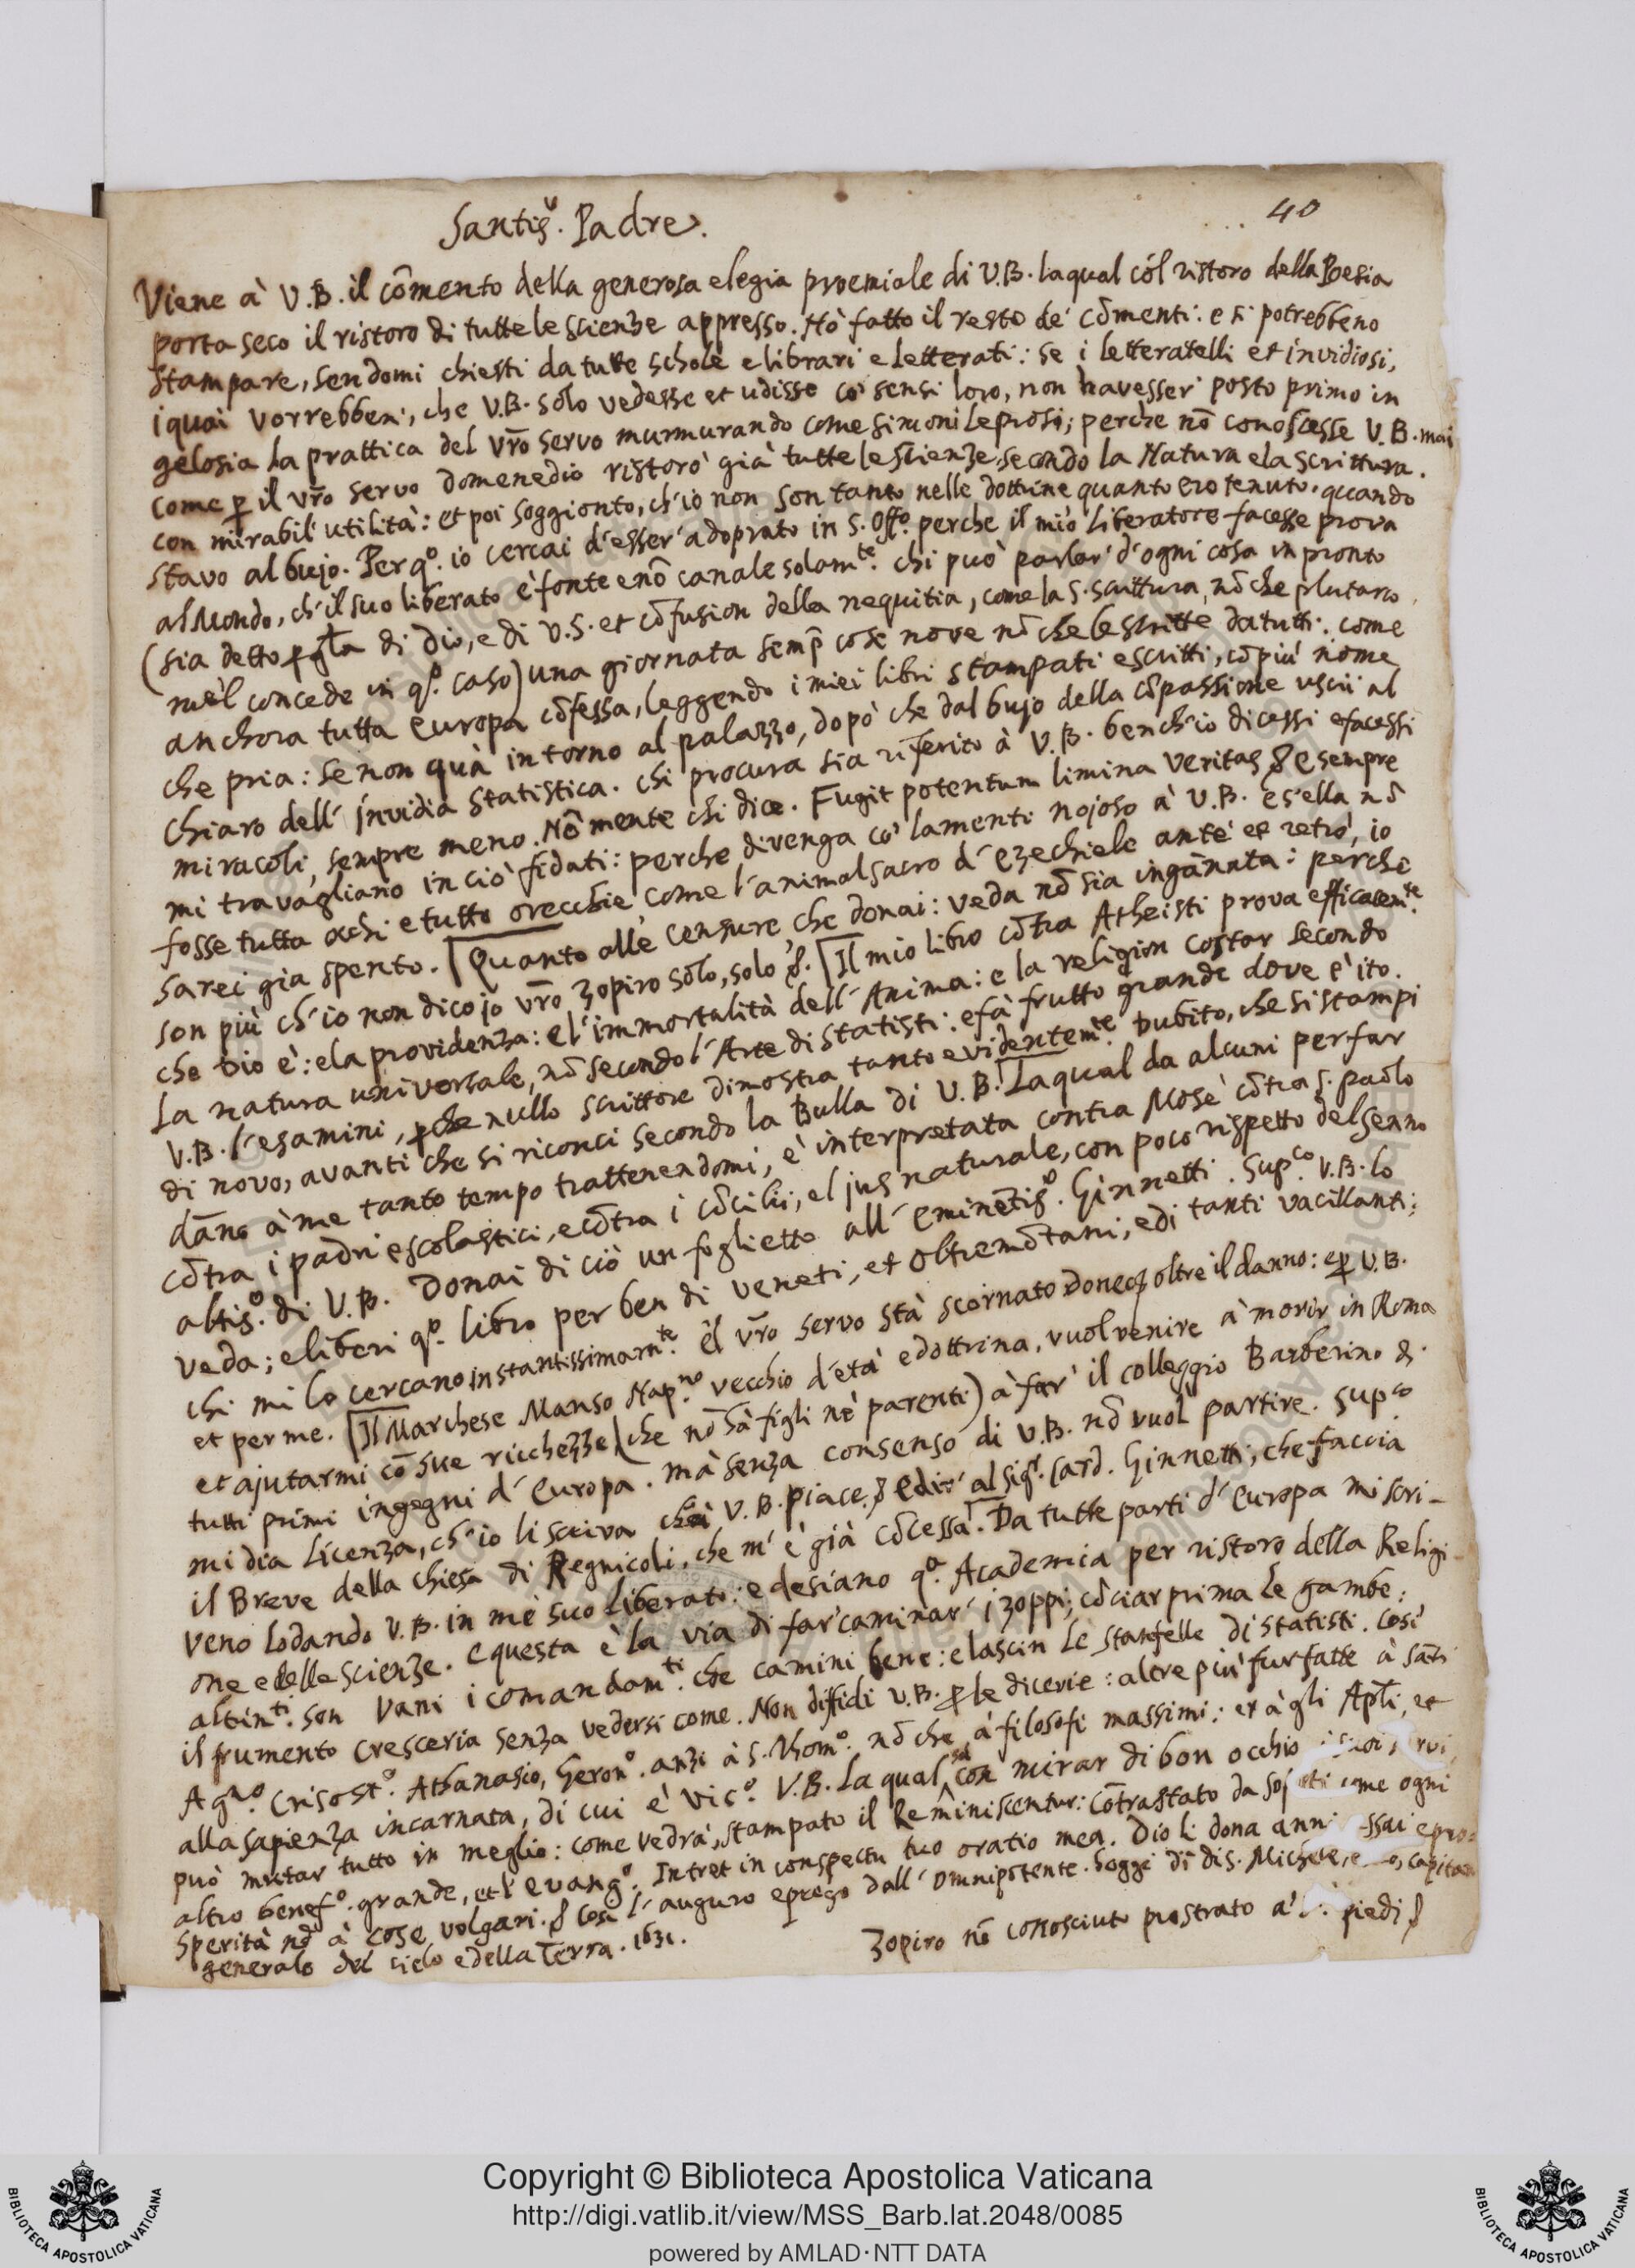 40
Santisº. Padre.
Viene à V.B. il cōmento della generosa elegia proemiale di V.B. laqual cól ristoro della Poesia
porta seco il ristoro di tutte le scienze appresso. Hò fatto il resto de' cōmenti: e si potrebbeno
stampare, sendomi chiesti da tutte schole e librari e letterati: se i letteratelli et invidiosi,
iquai vorrebben', che V.B. solo vedesse et udisse co' sensi loro, non havesser' posto primo in
gelosia la prattica del vr̄o servo murmurando come simoni leprosi; perche nō conoscesse V.B. mai
come ꝑ il vr̄o servo domenedio ristorò già tutte le scienze, secondo la Natura e la scrittura.
con mirabil' utilità: et poi soggionto, ch'io non son tanto nelle dottrine quanto ero tenuto, quando
stavo al bujo. Per qº. io cercai d'esser' adoprato in S. Offº. perche il mio liberatore facesse prova
al Mondo, ch'il suo liberato è fonte e nō canale solamᵗᵉ. chi può parlar' d'ogni cosa in pronto
(sia detto ꝑ gl̄a di Dio, e di V.S. et cōfusion della nequitia, come la S. scrittura, nō che plutarco
mel concede in qº. caso) una giornata semp̄ cose nove nō che le scritte da tutti. come
anchora tutta Europa cōfessa, leggendo i miei libri stampati e scritti, cō più nome
che pria: se non quà intorno al palazzo, dopò che dal bujo della cōpassione uscii al
chiaro dell' invidia statistica. chi procura sia riferito à V.B. bench'io dicessi e facessi
miracoli, sempre meno. Nō mente chi dice. Fugit potentum limina veritas & e sempre
mi travagliano in ciò fidati: perche divenga co' lamenti nojoso à V.B. e s'ella nō
fosse tutta occhi e tutto orecchie come l'animal sacro d'Ezechiele ante et retro, io
sarei gia spento. Quanto alle censure che donai: veda nō sia ingānata: perche
son più ch'io non dico jo vr̄o Zopiro solo, solo &. Il mio libro cōtra Atheisti prova efficacemᵗᵉ.
che Dio è: e la providenza: e l'immortalità dell' Anima: e la religion costar secondo
La natura universale, nō secondo l'Arte di statisti: e fà frutto grande dove è ito.
V.B. l'esamini, ꝑche nullo scrittore dimostra tanto evidentemᵗᵉ. Dubito, che si stampi
di novo, avanti che si riconci secondo la Bulla di V.B. Laqual da alcuni per far
dāno à me tanto tempo trattenendomi, è interpretata contra Mosè cōtra S. paolo
cōtra i padri e scolastici, e cōtra i cōcilii, e l jus naturale, con poco rispetto del senno
altisº. di V.B. Donai di ciò un foglietto all' Eminētisº. Ginnetti. Supᶜᵒ V.B. lo
veda; e liberi qº. libro per ben di veneti, et oltremōtani, e di tanti vacillanti;
chi mi lo cercano instantissimamᵗᵉ. e l vr̄o servo stà scornato Doneqꝫ oltre il danno: e ꝑ V.B.
et per me. Il Marchese Manso Napⁿᵒ. vecchio d'età e dottrina, vuol venire à morir in Roma
et ajutarmi cō sue ricchezze (che nō hà figli nè parenti) à far' il colleggio Barberino di
tutti primi ingegni d'Europa. mà senza consenso di V.B. nō vuol partire. Supᶜᵒ
mi dia licenza, ch'io li scriva che V.B. piace. & e dir' al sigʳ. Card. Ginnetti, che faccia
il Breve della chiesa di Regnicoli, che m'è già cōcessa. Da tutte parti d'Europa mi scri-
veno lodando V.B. in me suo liberato: e desiano qª. Academia per ristoro della Religi-
one e delle scienze. E questa è la via di far' caminar' i zoppi; cōciar prima le gambe:
altimᵗⁱ. son vani i comandamᵗⁱ. che camini bene: e lascin le stanfelle di statisti. Così
il frumento cresceria senza vedersi come. Non diffidi V.B. ꝑ le dicerie: altre più fur fatte à Sāti
Agⁿᵒ. Crisostº. Athanasio, Geronº. anzi à S. Thomº. nō che à filosofi massimi: et à gli Apli, et
alla sapienza incarnata, di cui è vicº. V.B. La qual sol con mirar di bon occhio i suoi servi,
può mutar tutto in meglio: come vedrà, stampato il Reminiscentur: cōtrastato da come ogni
altro benefº. grande, et l'evangº. Intret in conspectu tuo oratio mea. Dio li dona anni assai e pro-
sperità nō à cose volgari. & così l'auguro e prego dall' omnipotente. hoggi dì di S. Michele, capitan
generale del cielo e della Terra. 1631.
Zopiro nō conosciuto prostrato a' piedi &
Copyright © Biblioteca Apostolica Vaticana
http://digi.vatlib.it/view/MSS_Barb.lat.2048/0085
powered by AMLAD·NTT DATA
BIBLIOTECA APOSTOLICA VATICANA
BIBLIOTECA APOSTOLICA VATICANA